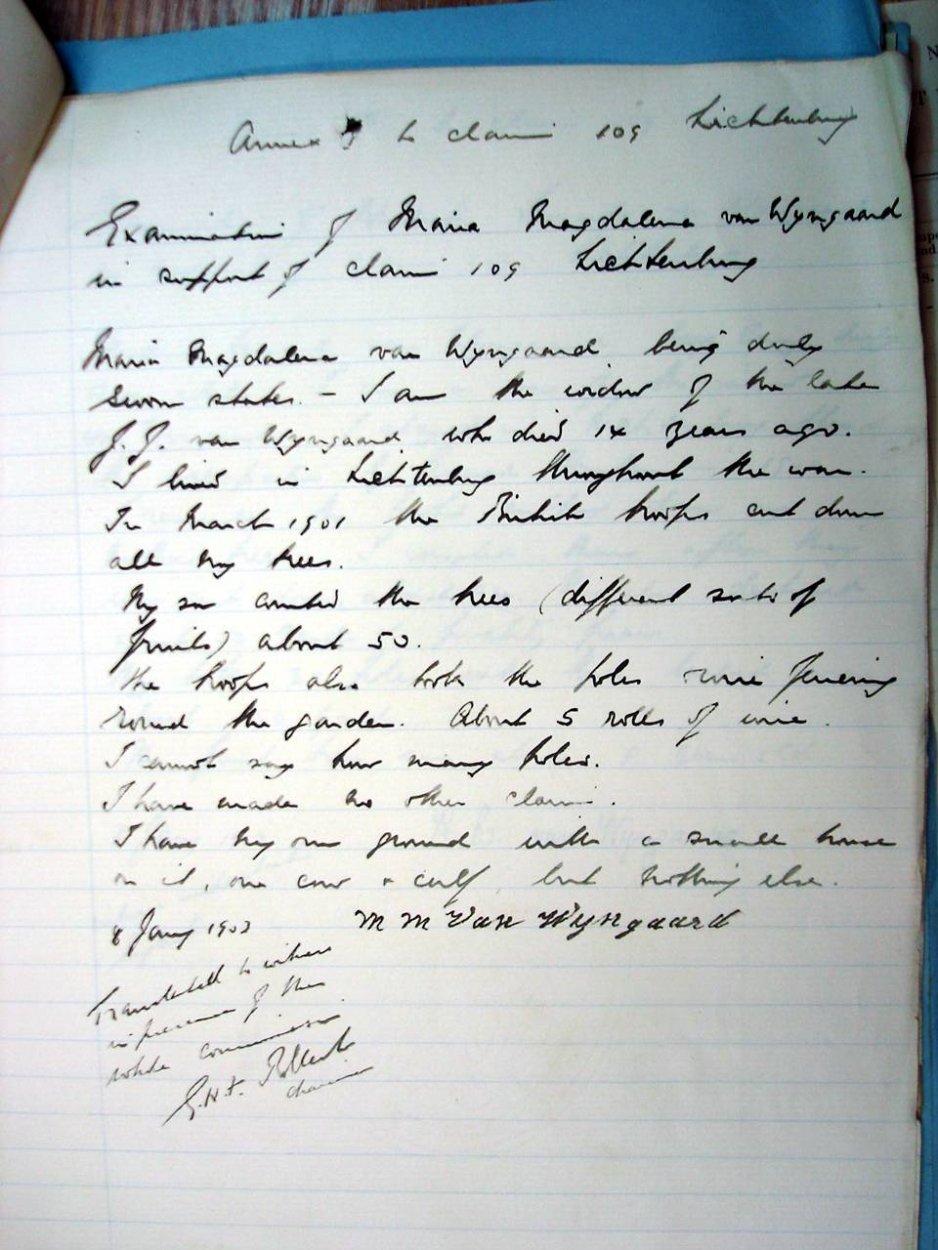 Annex to claim 109 Lichtenburg
Examination of Maria Magdalena van Wyngaard
in support of claim 109 Lichtenburg
Maria Magdalena van Wyngaard being duly
sworn states. – I am the widow of the late
J.J. van Wyngaard who died 14 years ago.
I lived in Lichtenburg throughout the war.
In March 1901 the British troops cut down
all my trees.
My son counted the trees (different sorts of
fruits) about 50.
The troops also took the poles wire fencing
round the garden. About 5 rolls of wire.
I cannot say how many poles.
I have made no other claim.
I have my own ground with a small house
on it, one cow & calf, but nothing else.
8 Jany 1903 M M Van Wyngaard
Translated to witness
in presence of the
whole commission
G.H.F.
chairman